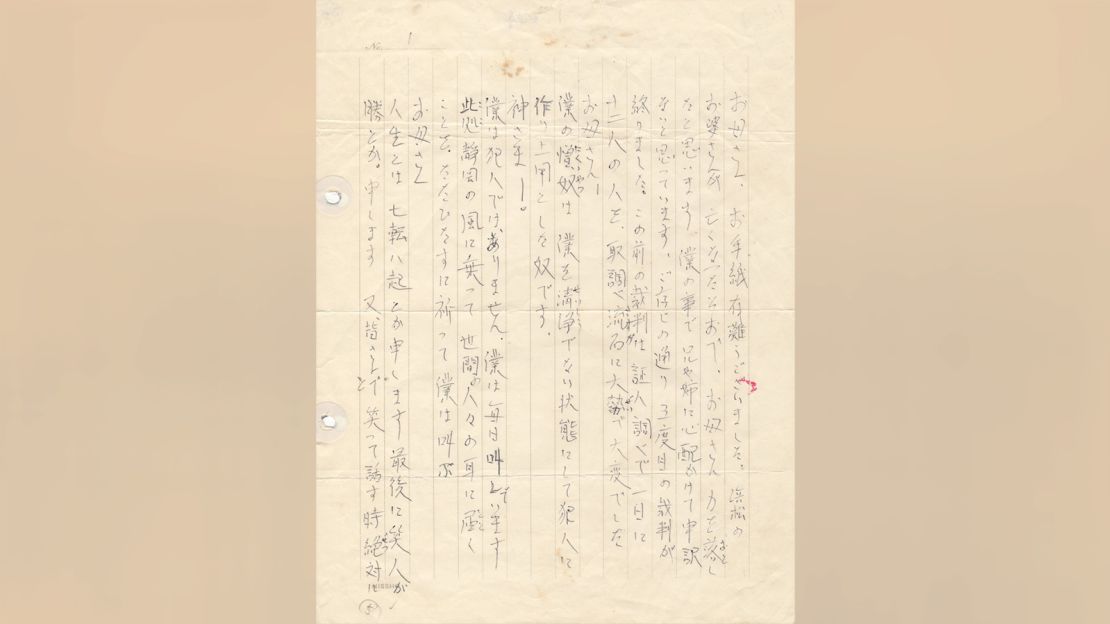 No. 1
お母さん、お手紙有難うございました。浜松の
お婆さんが亡くなったそおで、お母さん力を落し
たと思います。僕の事で兄や姉に心配かけて申訳
ないと思っています。ご存じの通り三度目の裁判が
終りました。この前の裁判は証人調べで一日に
十二人の人を、取調べ流石に大勢で大変でした
お母さん!
僕の憎い奴は僕を清浄でない状態にして犯人に
作り上げ様とした奴です。
神さま!。
僕は犯人では、ありません。僕は毎日叫んで います
此の静岡の風に乗って世間の人々の耳に届く
ことを、ただひたすらに祈って僕は叫ぶ
お母さん
人生とは七転八起とか申します最後に笑う人が
勝とか申します 又、皆さんで笑って話す時絶対に